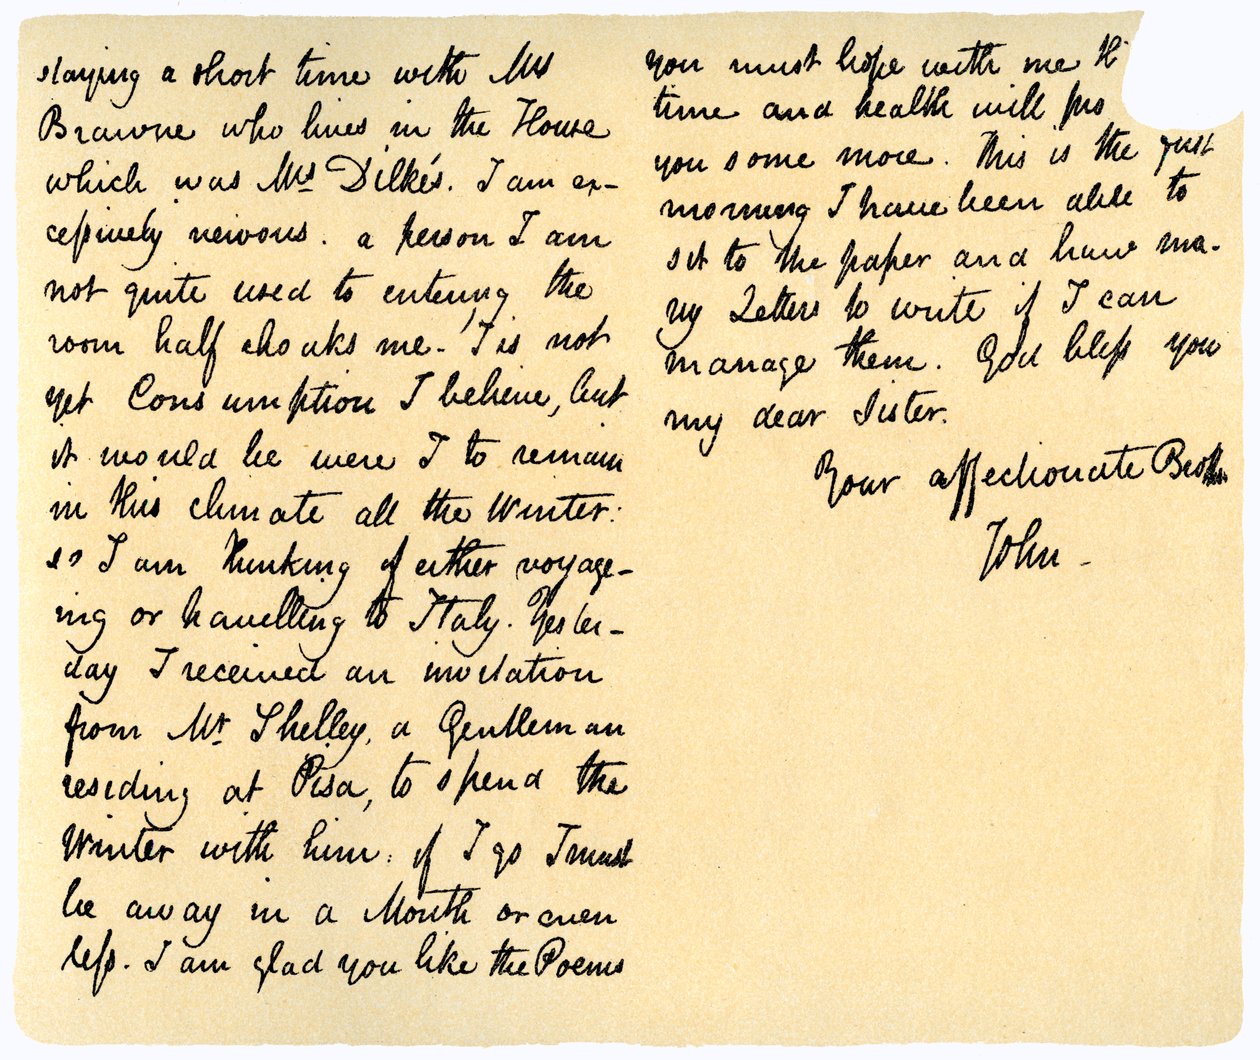 staying a short time with Mrs
Brawne who lives in the House
which was Mrs Dilke's. I am ex-
cessively nervous. a person I am
not quite used to entering the
room half choaks me. 'Tis not
yet Consumption I believe, but
it would be were I to remain
in this climate all the Winter:
so I am thinking of either voyage-
ing or travelling to Italy. Yester-
day I received an invitation
from Mr Shelley, a Gentleman
residing at Pisa, to spend the
Winter with him: if I go I must
be away in a Month or even
less. I am glad you like the Poems
you must hope with me
time and health will pro
you some more. This is the first
morning I have been able to
sit to the paper and have ma-
ny Letters to write if I can
manage them. God bless you
my dear Sister.
Your affectionate Brother
John -